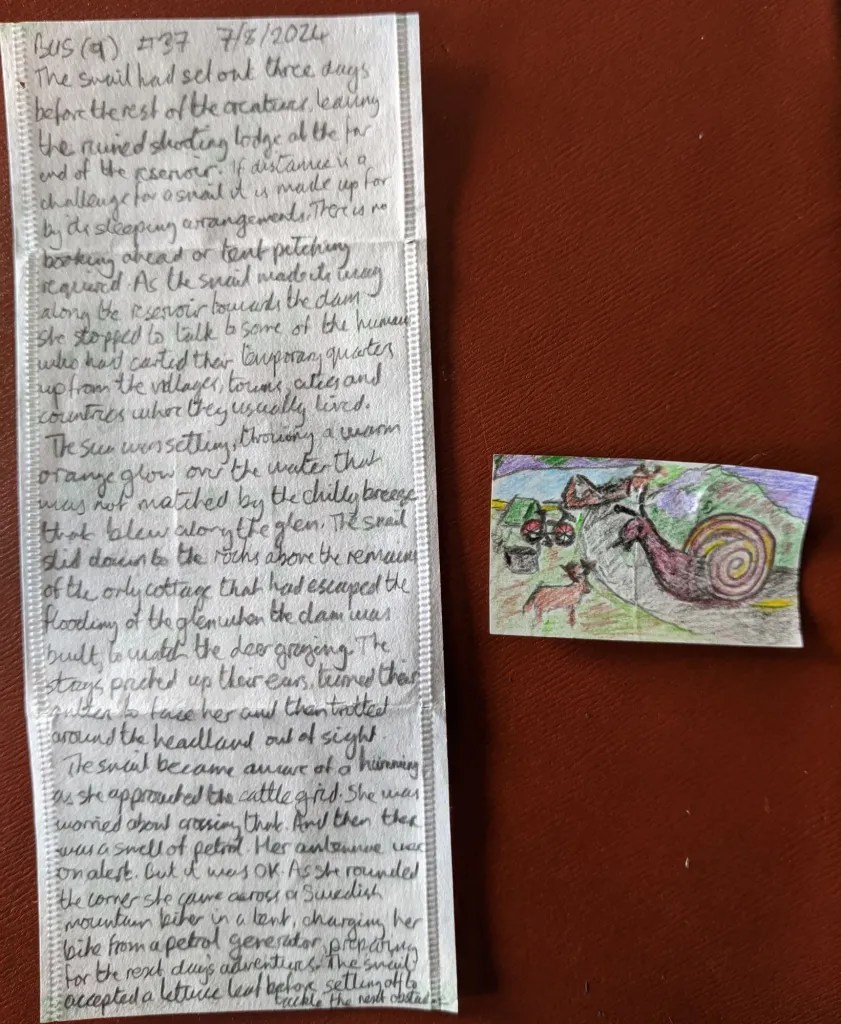 BUS (9) #37 7/8/2024
The snail had set out three days
before the rest of the creatures, leaving
the ruined shooting lodge at the far
end of the reservoir. If distance is a
challenge for a snail it is made up for
by its sleeping arrangements. There is no
booking ahead or tent pitching
required. As the snail made its way
along the reservoir towards the dam
she stopped to talk to some of the humans
who had carted their temporary quarters
up from the villages, towns, cities and
countries where they usually lived.
The sun was setting, throwing a warm
orange glow over the water that
was not matched by the chilly breeze
that blew along the glen. The snail
slid down to the rocks above the remains
of the only cottage that had escaped the
flooding of the glen when the dam was
built, to watch the deer grazing. The
stags pricked up their ears, turned their
to face her and then trotted
around the headland out of sight.
The snail became aware of a humming
as she approached the cattle grid. She was
worried about crossing that. And then there
was a smell of petrol. Her antennae were
on alert. But it was OK. As she rounded
the corner she came across a Swedish
mountain biker in a tent, charging her
bike from a petrol generator, preparing
for the next days adventures. The snail
accepted a lettuce leaf before setting off to
tackle the next obstacle.